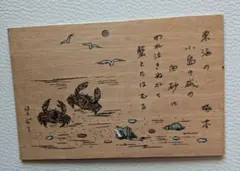 東海の
小島の磯の
白砂に
われ泣きぬれて
蟹とたはむる
啄木
はこだて